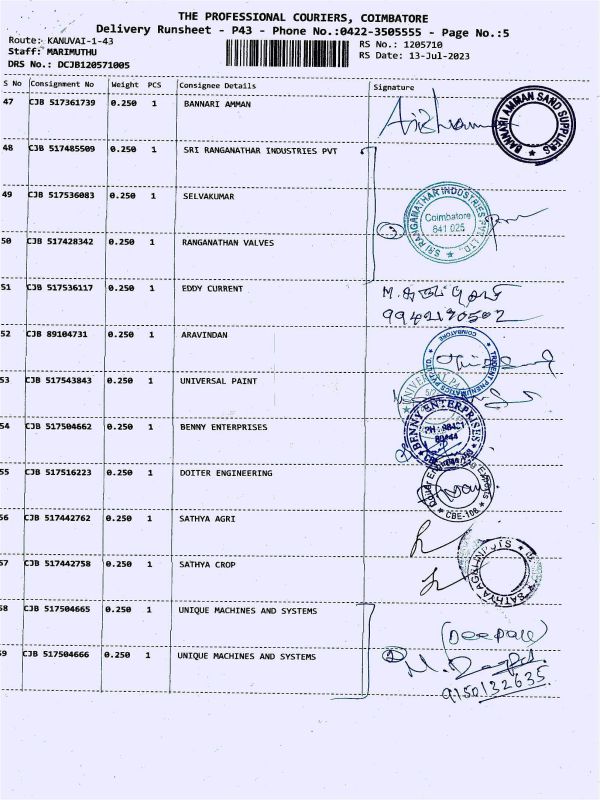 THE PROFESSIONAL COURIERS, COIMBATORE
Delivery Runsheet - P43 - Phone No.:0422-3505555 - Page No.:5
Route: KANUVAI-1-43
Staff: MARIMUTHU
DRS No.: DCJB120571005
RS No.: 1205710
RS Date: 13-Jul-2023
S No Consignment No Weight PCS Consignee Details Signature
47 CJB 517361739 0.250 1 BANNARI AMMAN
BANNARI AMMAN SAND SUPPLIERS
48 CJB 517485509 0.250 1 SRI RANGANATHAR INDUSTRIES PVT
49 CJB 517536083 0.250 1 SELVAKUMAR
SRI RANGANATHAR INDUSTRIES PVT. LTD.
Coimbatore
641 025
3
50 CJB 517428342 0.250 1 RANGANATHAN VALVES
51 CJB 517536117 0.250 1 EDDY CURRENT
52 CJB 89104731 0.250 1 ARAVINDAN
COIMBATORE
TRIDENT PNEUMATICS PVT. LTD.
53 CJB 517543843 0.250 1 UNIVERSAL PAINT
UNIVERSAL PA
54 CJB 517504662 0.250 1 BENNY ENTERPRISES
BENNY ENTERPRISES
55 CJB 517516223 0.250 1 DOITER ENGINEERING
CBE-108
56 CJB 517442762 0.250 1 SATHYA AGRI
57 CJB 517442758 0.250 1 SATHYA CROP
SATHYA AGRI INPUTS
58 CJB 517504665 0.250 1 UNIQUE MACHINES AND SYSTEMS
(Deepak)
59 CJB 517504666 0.250 1 UNIQUE MACHINES AND SYSTEMS
2
9150132635